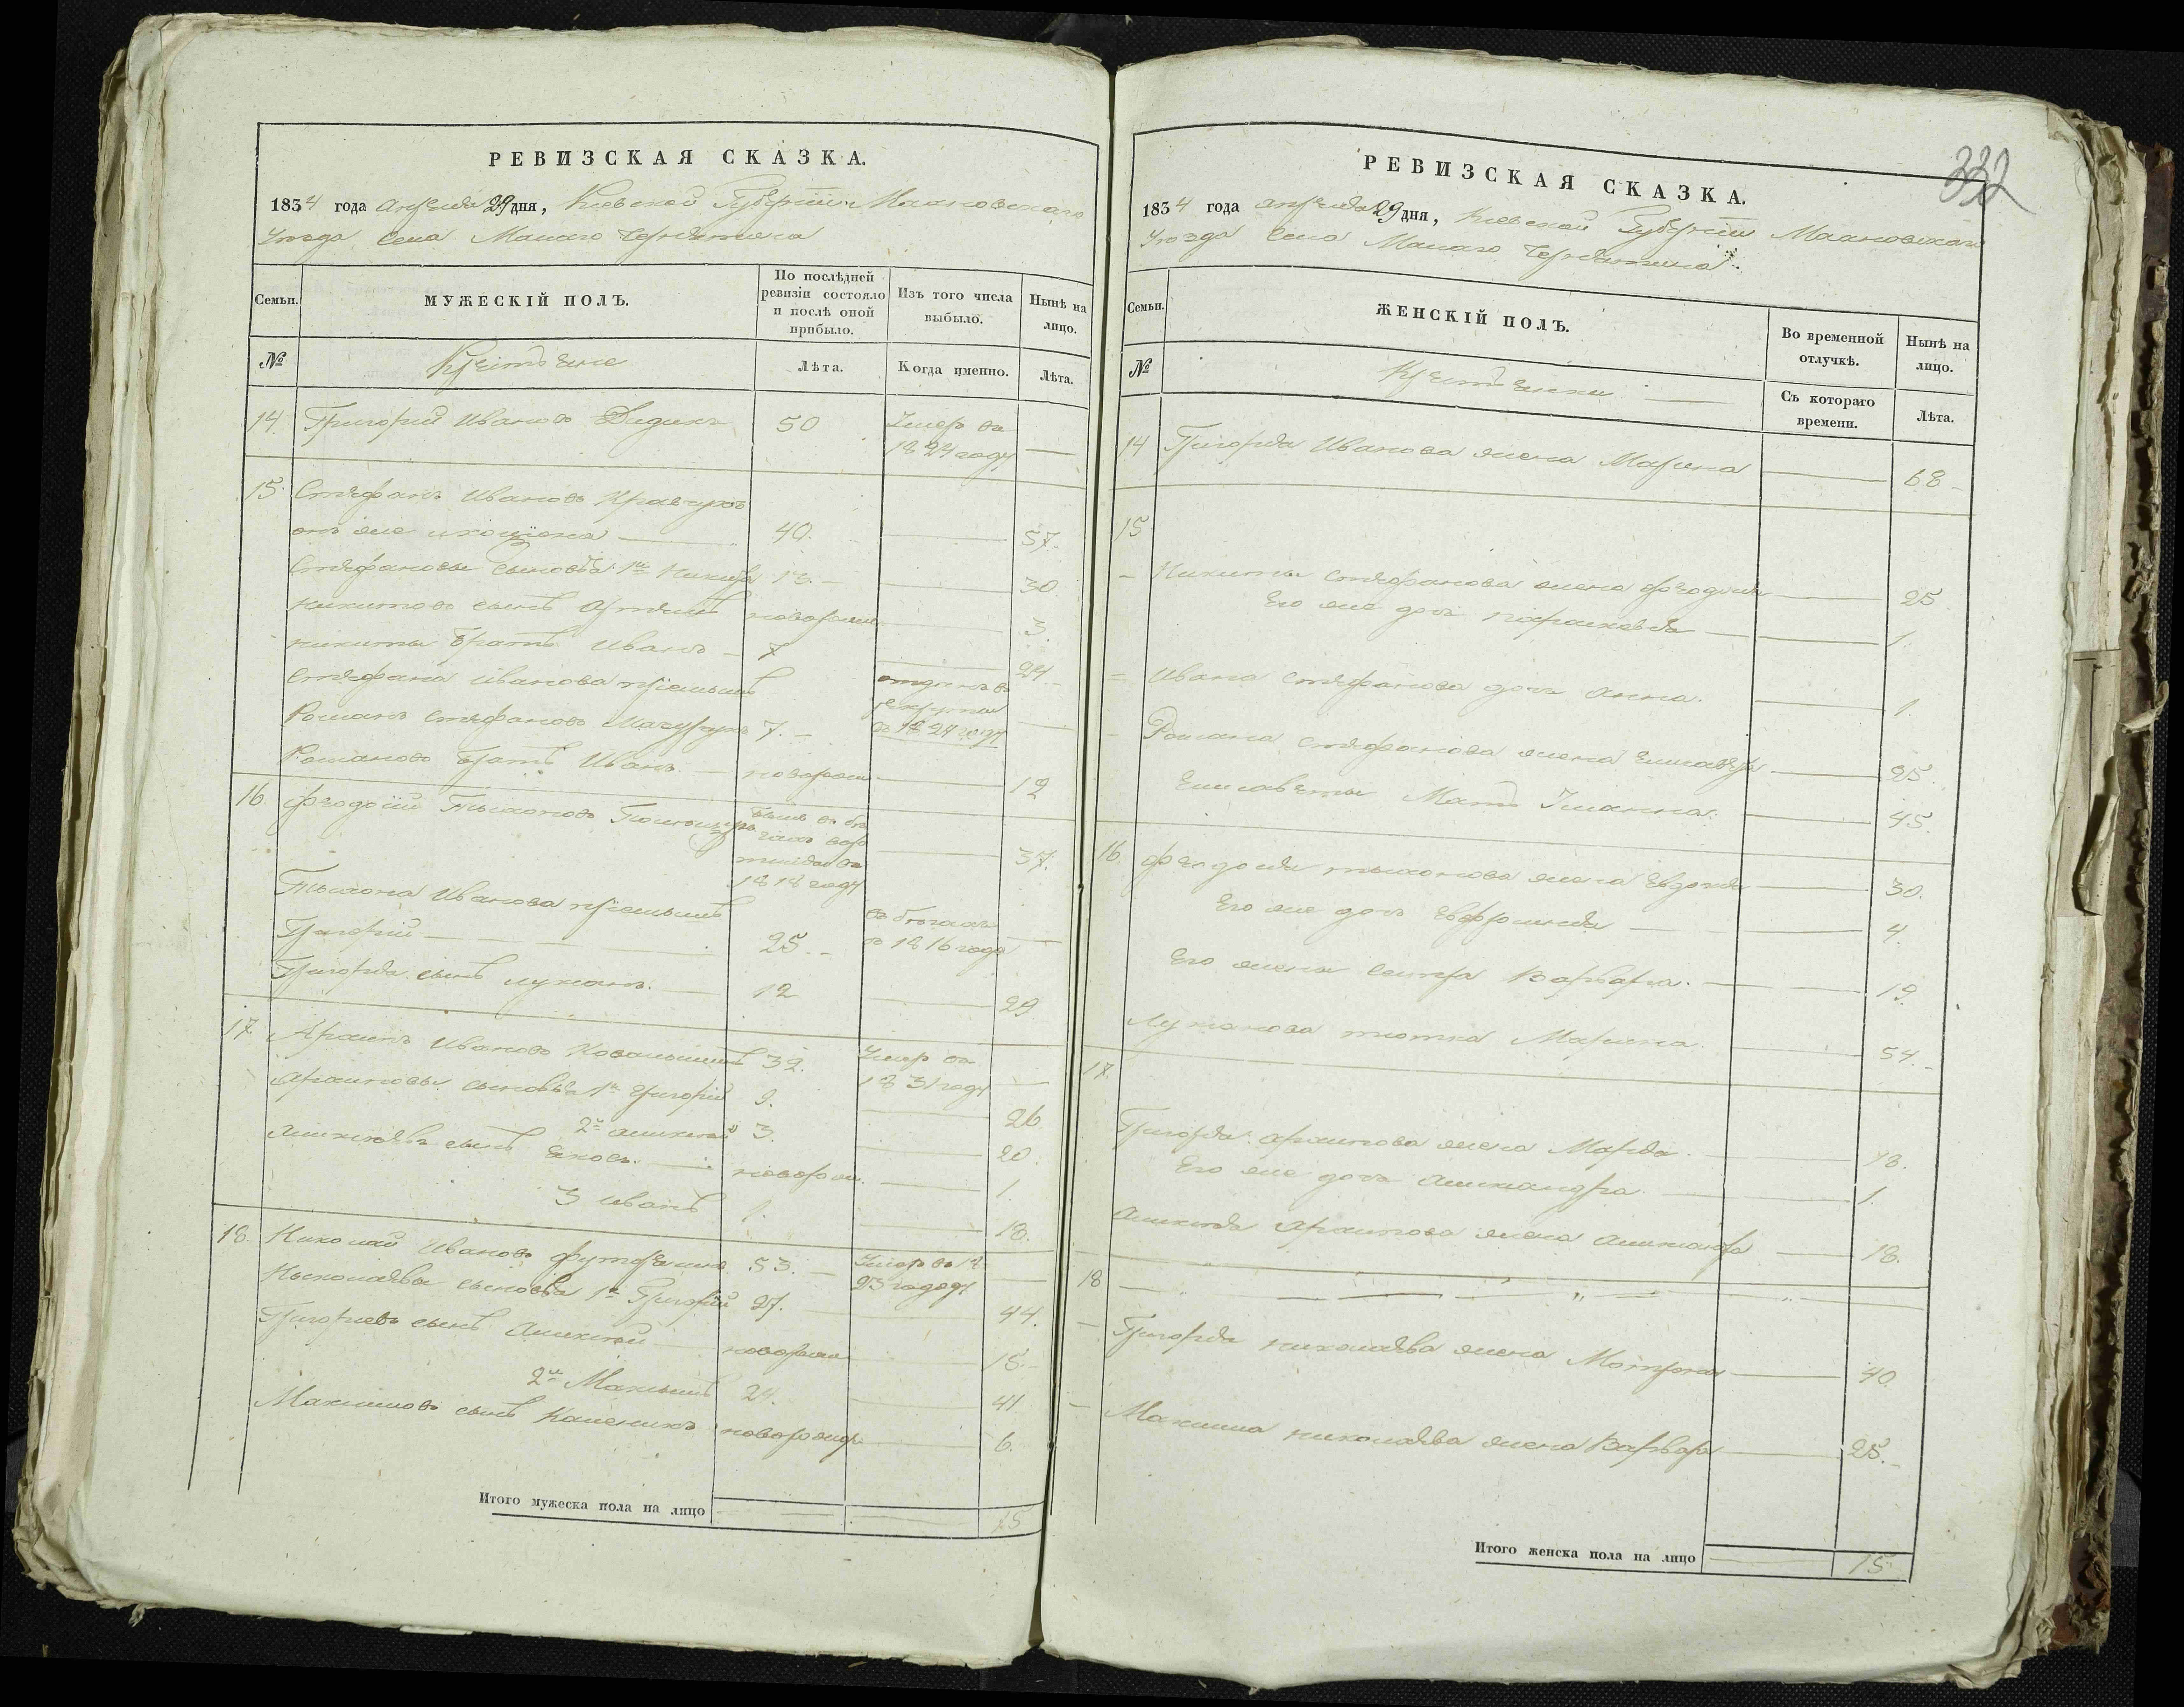 332
РЕВИЗСКАЯ СКАЗКА.
1834 года апреля 29 дня, Киевской Губернии Махновскаго
Уезда Села Малаго Чернятина
Семьи. МУЖЕСКІЙ ПОЛЪ. По послѣдней ревизіи состояло и послѣ оной прибыло. Изъ того числа выбыло. Нынѣ на лицо.
№ Крестьяне Лѣта. Когда именно. Лѣта.
14. Григорий Иванов Дидикъ 50 Умер въ
1824 году —
15. Стефанъ Иванов Кравчукъ
онъ же 40. — 57.
Стефановы сыновья 1й Никита 13. — 30
Никитов сынъ Артемъ новорожд. — 3.
Никиты братъ Иванъ — 7 — 24.
Стефана Иванова приемышъ отданъ в
рекруты
Романъ Стефанов 7. — в 1824 году —
Романовъ братъ Иванъ — новорожд — 12
16. Феодосий Тихонов былъ в бе-
гахъ
— 37.
1818 году
Тихона Иванова приемышъ
Григорий — 25. — въ бегахъ
с 1816 года —
Григория сынъ Лукианъ. — 12 — 29
17. Архипъ Иванов Ковальишинъ 32. Умер въ
1831 году —
Архиповы сыновья 1й Григорий 9. — 26
2й Алексей 3. — 20.
Алексеевъ сынъ Яковъ. — новорож. — 1.
3 Иванъ 1. — 18.
18. Николай Иванов 53. — Умер въ 18
23 году —
Николаевы сыновья 1й Григорий 27. — 44.
Григориевъ сынъ Алексей — новорожд — 15.
2й Максимъ 24. — 41
Максимовъ сынъ Каленикъ новорожд. — 6.
Итого мужеска пола на лицо — — 15
РЕВИЗСКАЯ СКАЗКА.
1834 года апреля 29 дня, Киевской Губернии Махновскаго
Уезда Села Малаго Чернятина
Семьи. ЖЕНСКІЙ ПОЛЪ. Во временной отлучкѣ. Нынѣ на лицо.
№ Крестьянки — Съ котораго времени. Лѣта.
14 Григория Иванова жена Марина — 68
15
— Никиты Стефанова жена Феодосия — 25
Его же дочь Параскевия — 1.
= Ивана Стефанова дочь Анна. — 1.
— Романа Стефанова жена Елисавета — 25.
Елисаветы Мать Улианна. — 45.
16. Феодосия Тихонова жена Евдокия — 30.
Его же дочь Евфросиния — 4.
Его жены сестра Варвара. — 19.
Лукианова тютка Марина. — 54.
17.
Григория Архипова жена Мария. — 18.
Его же дочь Александра. — 1.
Алексея Архипова жена Александра — 18.
18 — — — — „ — „
— Григория Николаева жена Мотрона — 40.
— Максима Николаева жена Варвара — 25.
Итого женска пола на лицо — 15